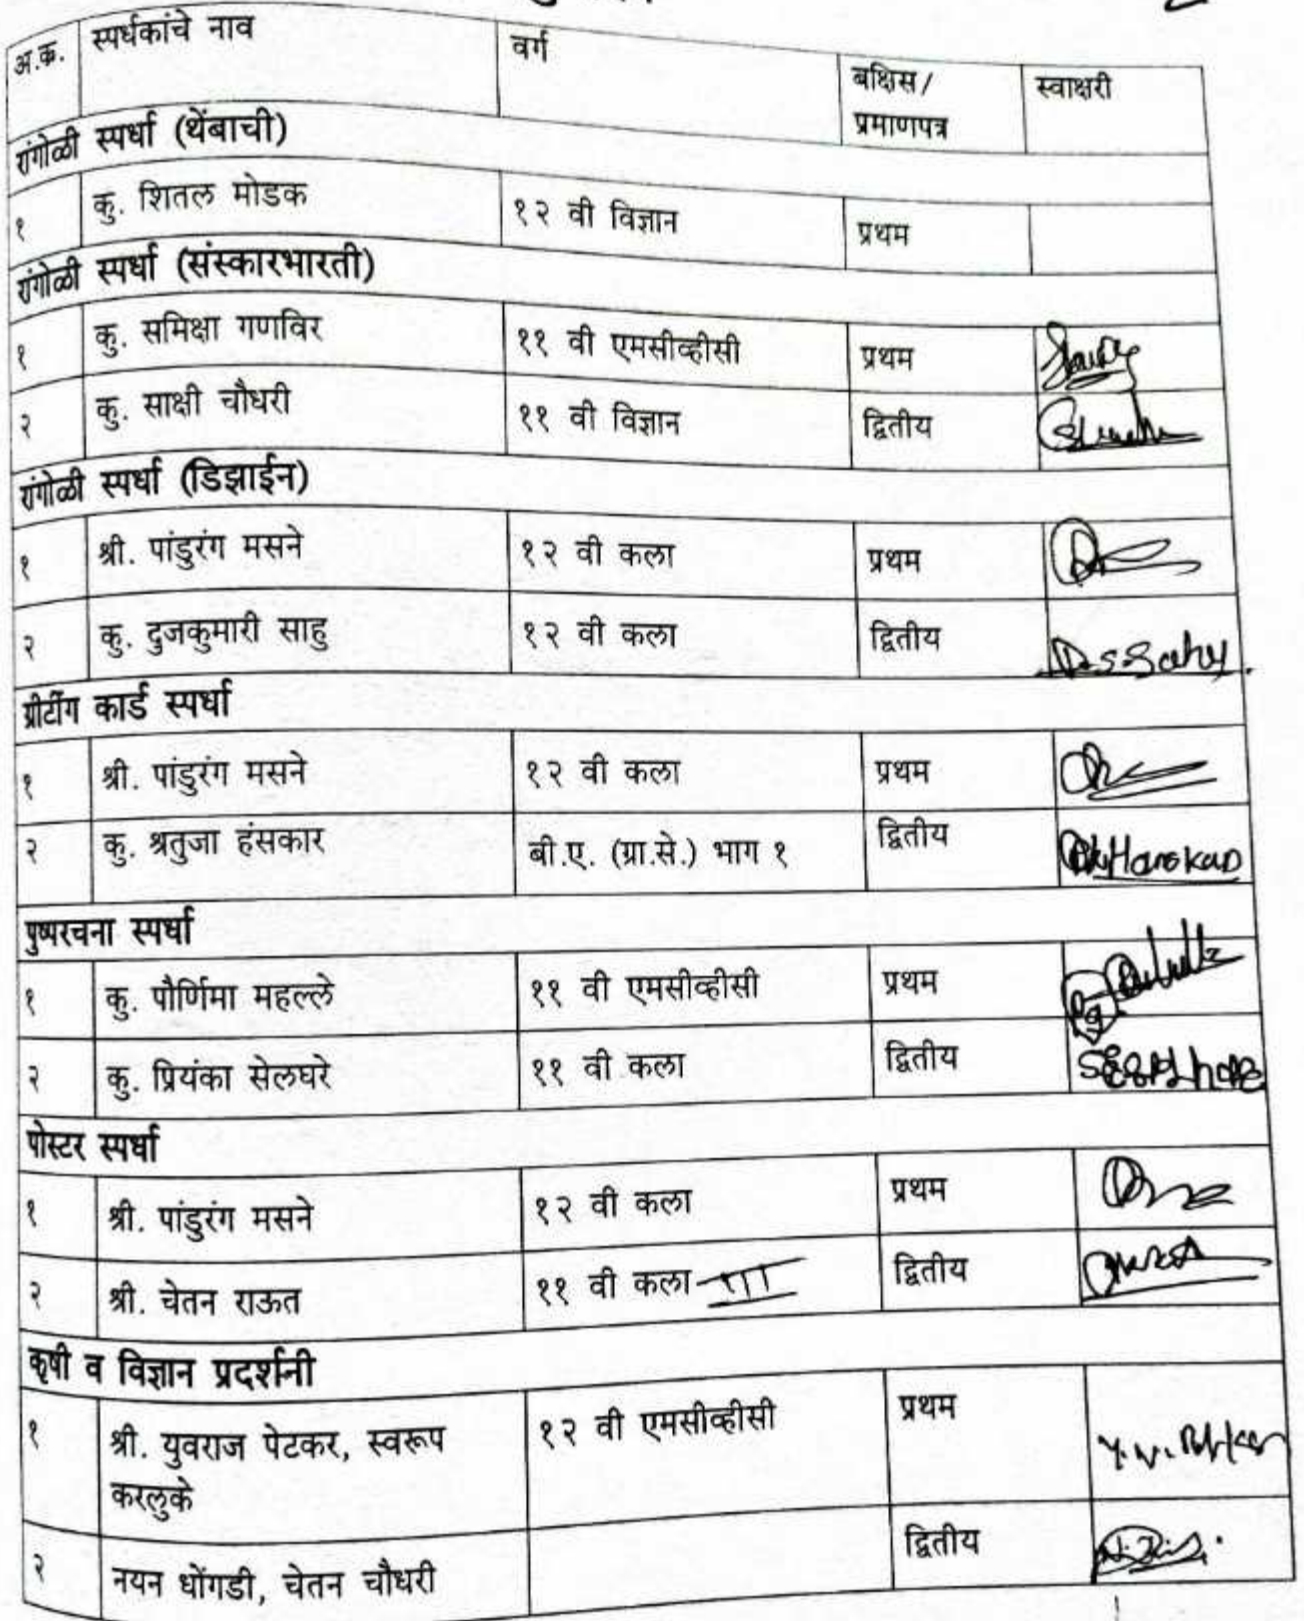 अ.क्र. स्पर्धकांचे नाव वर्ग बक्षिस/ स्वाक्षरी
प्रमाणपत्र
रांगोळी स्पर्धा (थेंबाची)
१ कु. शितल मोडक १२ वी विज्ञान प्रथम
रांगोळी स्पर्धा (संस्कारभारती)
१ कु. समिक्षा गणविर ११ वी एमसीव्हीसी प्रथम
२ कु. साक्षी चौधरी ११ वी विज्ञान द्वितीय
रांगोळी स्पर्धा (डिझाईन)
१ श्री. पांडुरंग मसने १२ वी कला प्रथम
२ कु. दुजकुमारी साहु १२ वी कला द्वितीय D.S.Sahu.
ग्रीटींग कार्ड स्पर्धा
१ श्री. पांडुरंग मसने १२ वी कला प्रथम
२ कु. श्रतुजा हंसकार बी.ए. (ग्रा.से.) भाग १ द्वितीय
पुष्परचना स्पर्धा
१ कु. पौर्णिमा महल्ले ११ वी एमसीव्हीसी प्रथम
२ कु. प्रियंका सेलघरे ११ वी कला द्वितीय
पोस्टर स्पर्धा
१ श्री. पांडुरंग मसने १२ वी कला प्रथम
२ श्री. चेतन राऊत ११ वी कला III द्वितीय
कृषी व विज्ञान प्रदर्शनी
१ श्री. युवराज पेटकर, स्वरूप १२ वी एमसीव्हीसी प्रथम
करलुके
२ नयन धोंगडी, चेतन चौधरी द्वितीय